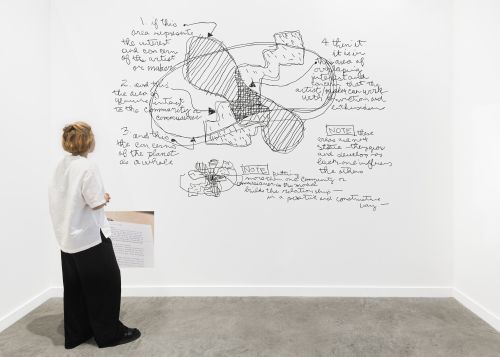 1. if this
area represents
the interest
and concern
of the artist
or maker
2. and this
the area of
genuine interest
to the community or
commissioner
3. and this
the concerns
of the planet
as a whole
4. then it
is in
this area of
overlapping
interest and
concern that the
artist/maker can work
with conviction and
enthusiasm
NOTE: these
areas are not
static — they grow
and develop as
each one influences
the others
NOTE: putting
more than one community or
commissioner in the model
builds the relationship —
in a positive and constructive
way —